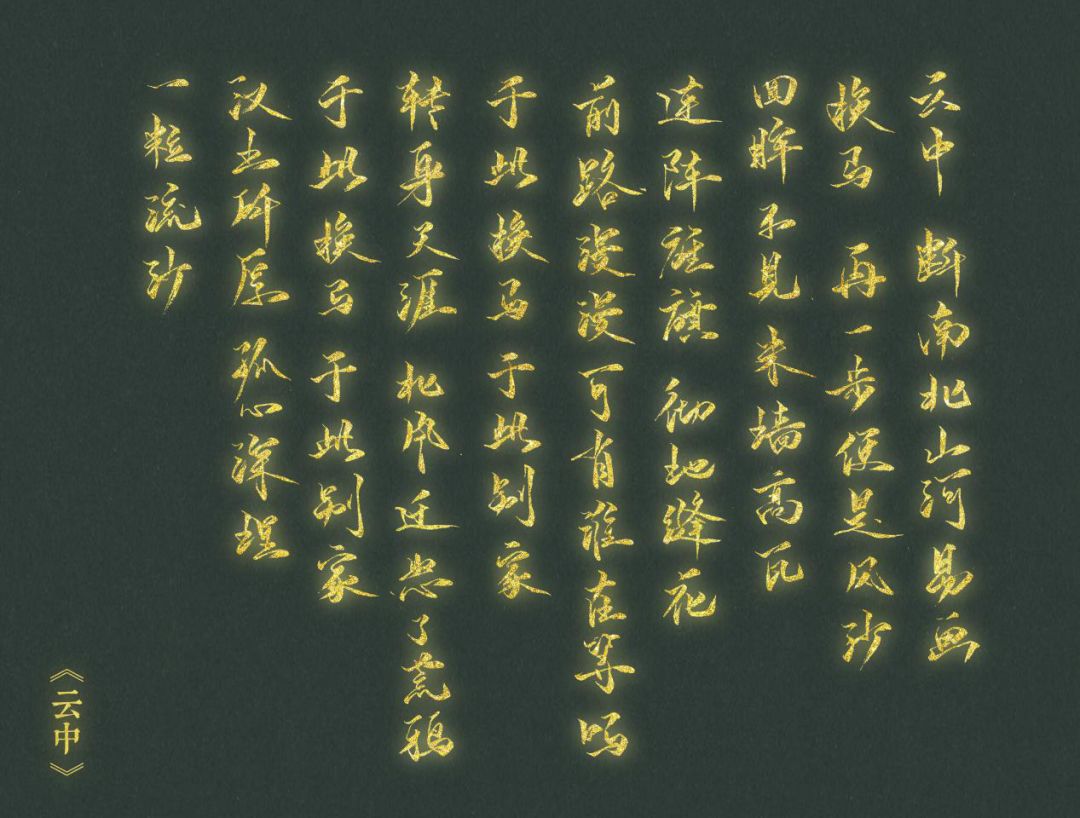 云中 断南北山河易画
换马 再一步便是风沙
回眸不见 朱墙高瓦
连阵旌旗 彻地缝花
前路漫漫 可有谁在等吗
于此换马 于此别家
转身天涯 北风迁怒了荒鸦
于此换马 于此别家
汉土所原 孤心深埋
一粒流沙
《云中》